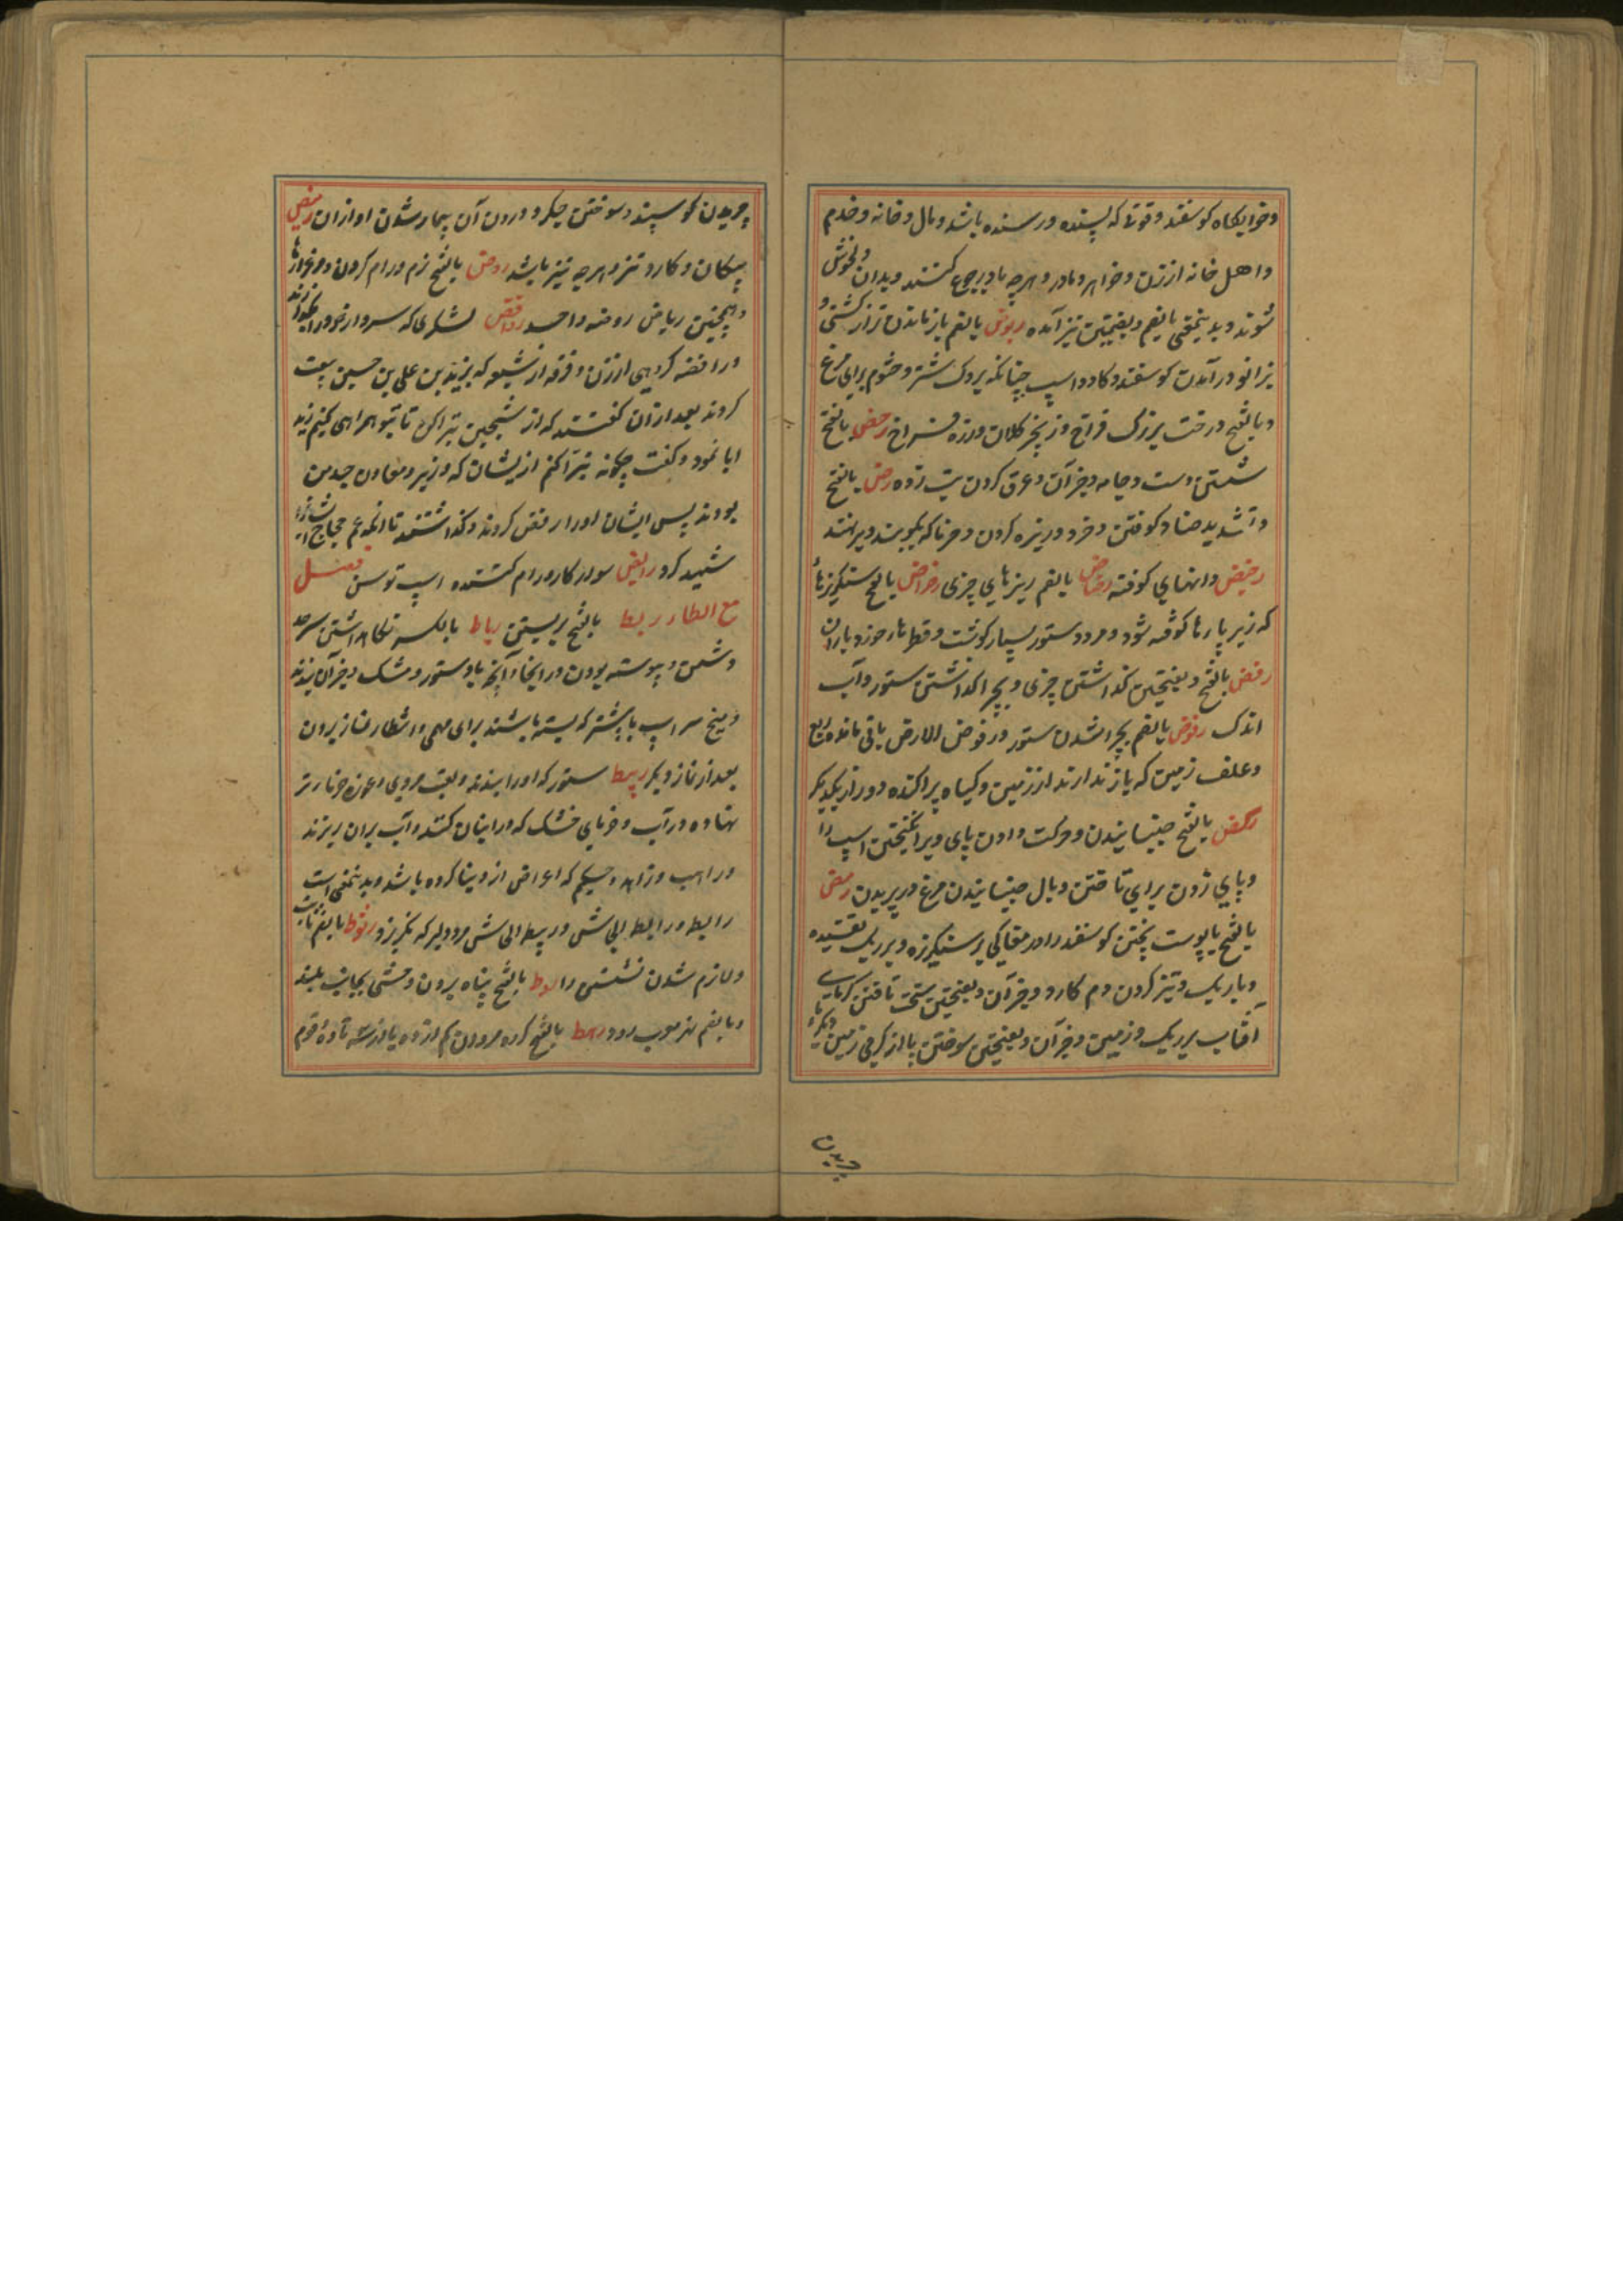 و خوابگاه گوسفند و قوتی که پسنده و رسنده باشد و مال و خانه و خدم
و اهل خانه از زن و خواهر و مادر و هرچه باو رجوع کنند و بدان دلخوش
شوند و بدینمعنی بالضم و بضمتین نیز آمده ربوض بالضم باز ماندن نر از کشنی و
بزانو درآمدن گوسفند و گاو و اسپ چنانکه بروک شتر و جثوم برای مرغ
و بالفتح درخت بزرگ فراخ و زنجیر کلان و زره فراخ رحض بالفتح
شستن دست و جامه و جز آن و عرق کردن تب زده رض بالفتح
و تشدید ضاد کوفتن و خرد و ریزه کردن و خرما که بکوبند
رضیض دانهای کوفته رضاض بالضم ریزهای چیزی رضراض بالفتح سنگریزها
که زیر پا رها کوفته شود و مرد و ستور بسیار گوشت و قطرهای خرد باران
رفض بالفتح و بفتحتین گذاشتن چیزی و بچرا گذاشتن ستور و آب
اندک رفوض بالضم بچرا شدن ستور و رفوض الارض باقی مانده
و علف زمین که باز ندارند از زمین و گیاه پراکنده دور از یکدیگر
رکض بالفتح جنبانیدن و حرکت دادن پای و برانگیختن اسپ را
و پای زدن برای تاختن و بال جنبانیدن مرغ در پریدن رمض
بالفتح با پوست پختن گوسفند را در مغاکی پر سنگریزه و بر ریگ تفتیده
و باریک و تیز کردن دم کارد و جز آن و بفتحتین سخت تافتن گرمای
آفتاب بر ریگ و زمین و جز آن و بفتحتین سوختن پا از گرمی زمین
چریدن
چریدن گوسپند و سوختن جگر و درون آن بیمار شدن او از آن رمیض
پیکان و کارد تیز و هرچه تیز باشد روض بالفتح نرم و رام کردن و مرغزارها
و همچنین ریاض روضه واحد روافض لشکری که سردار خود را بگذارند
و رافضه گروهی از آن و فرقه از شیعه که بزید بن علی بن حسین بیعت
کردند بعد از آن گفتند که از شیخین تبرا کن تا بتو همراهی کنیم زید
ابا نمود و گفت چگونه تبرا کنم از ایشان که وزیر و معاون جد من
بودند پس ایشان او را رفض کردند و گذاشتند تا آنکه حجاج
شهید کرد رایض سوارکار و رام کننده اسپ توسن فصل
مع الطاء ربط بالفتح بربستن رباط بالکسر نگاهداشتن سرحد
دشمن و پیوسته بودن در اینجا و آنچه باو ستور و مشک و جز آن بندند
و پنج سر اسپ یا بیشتر که بسته باشند برای مهمی و انتظار نماز بردن
بعد از نماز دیگر ربیط ستور که او را بندند
نهاده در آب و خرمای خشک که در انبان کنند و آب بران ریزند
و راهب و زاهد و حکیم که اعراض از دنیا کرده باشد و بدینمعنی است
رابط و رابط الجاش و ربیط الجاش مرد دلیر که نگریزد ربوط بالضم
و لازم شدن بالفتح پناه بردن وحشی بجای بلند
و بالضم رهط بالفتح گروه مردان کم از ده یا از سه تا ده قوم